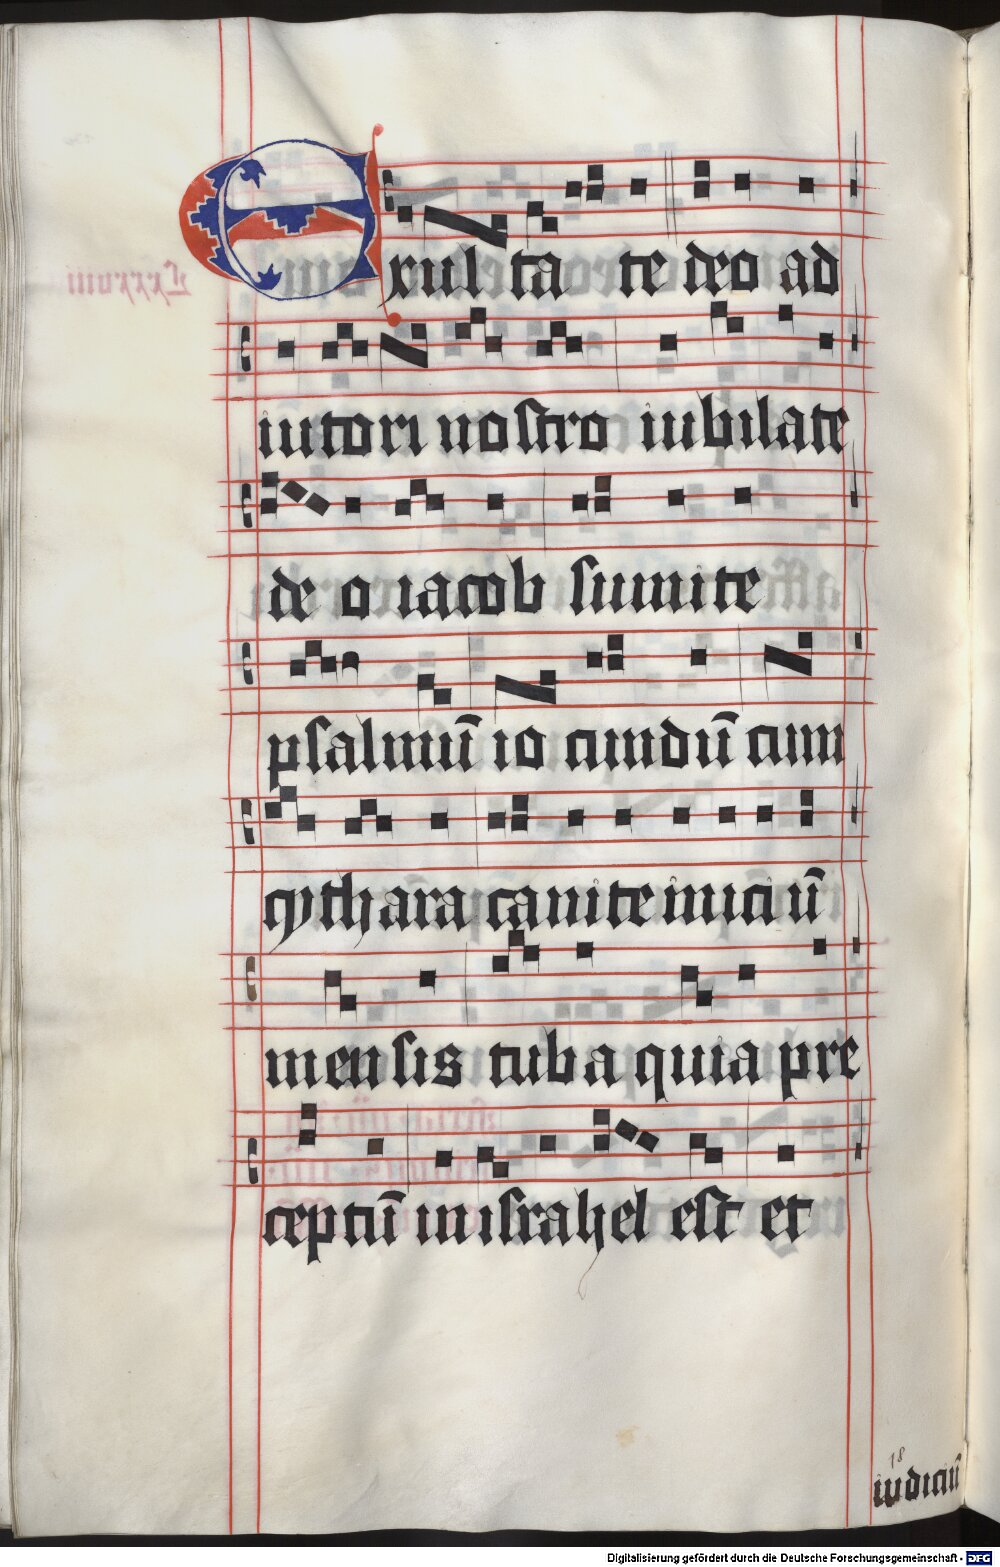 Exulta te deo ad
iutori nostro iubilate
de o iacob sumite
psalmū io cundū cum
cythara canite inici ū
mensis tuba quia pre
ceptū in israhel est et
18
iudiciū
Digitalisierung gefördert durch die Deutsche Forschungsgemeinschaft - DFG